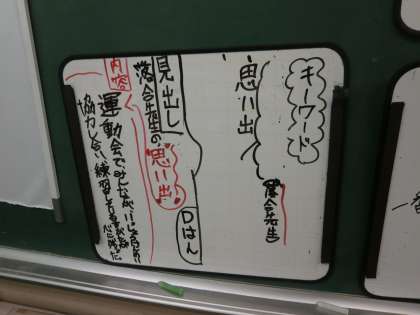 キーワード
思い出
落合先生
見出し
落合先生の思い出
Dはん
内容
運動会でみんながいっしょうけんめい
協力し合い練習